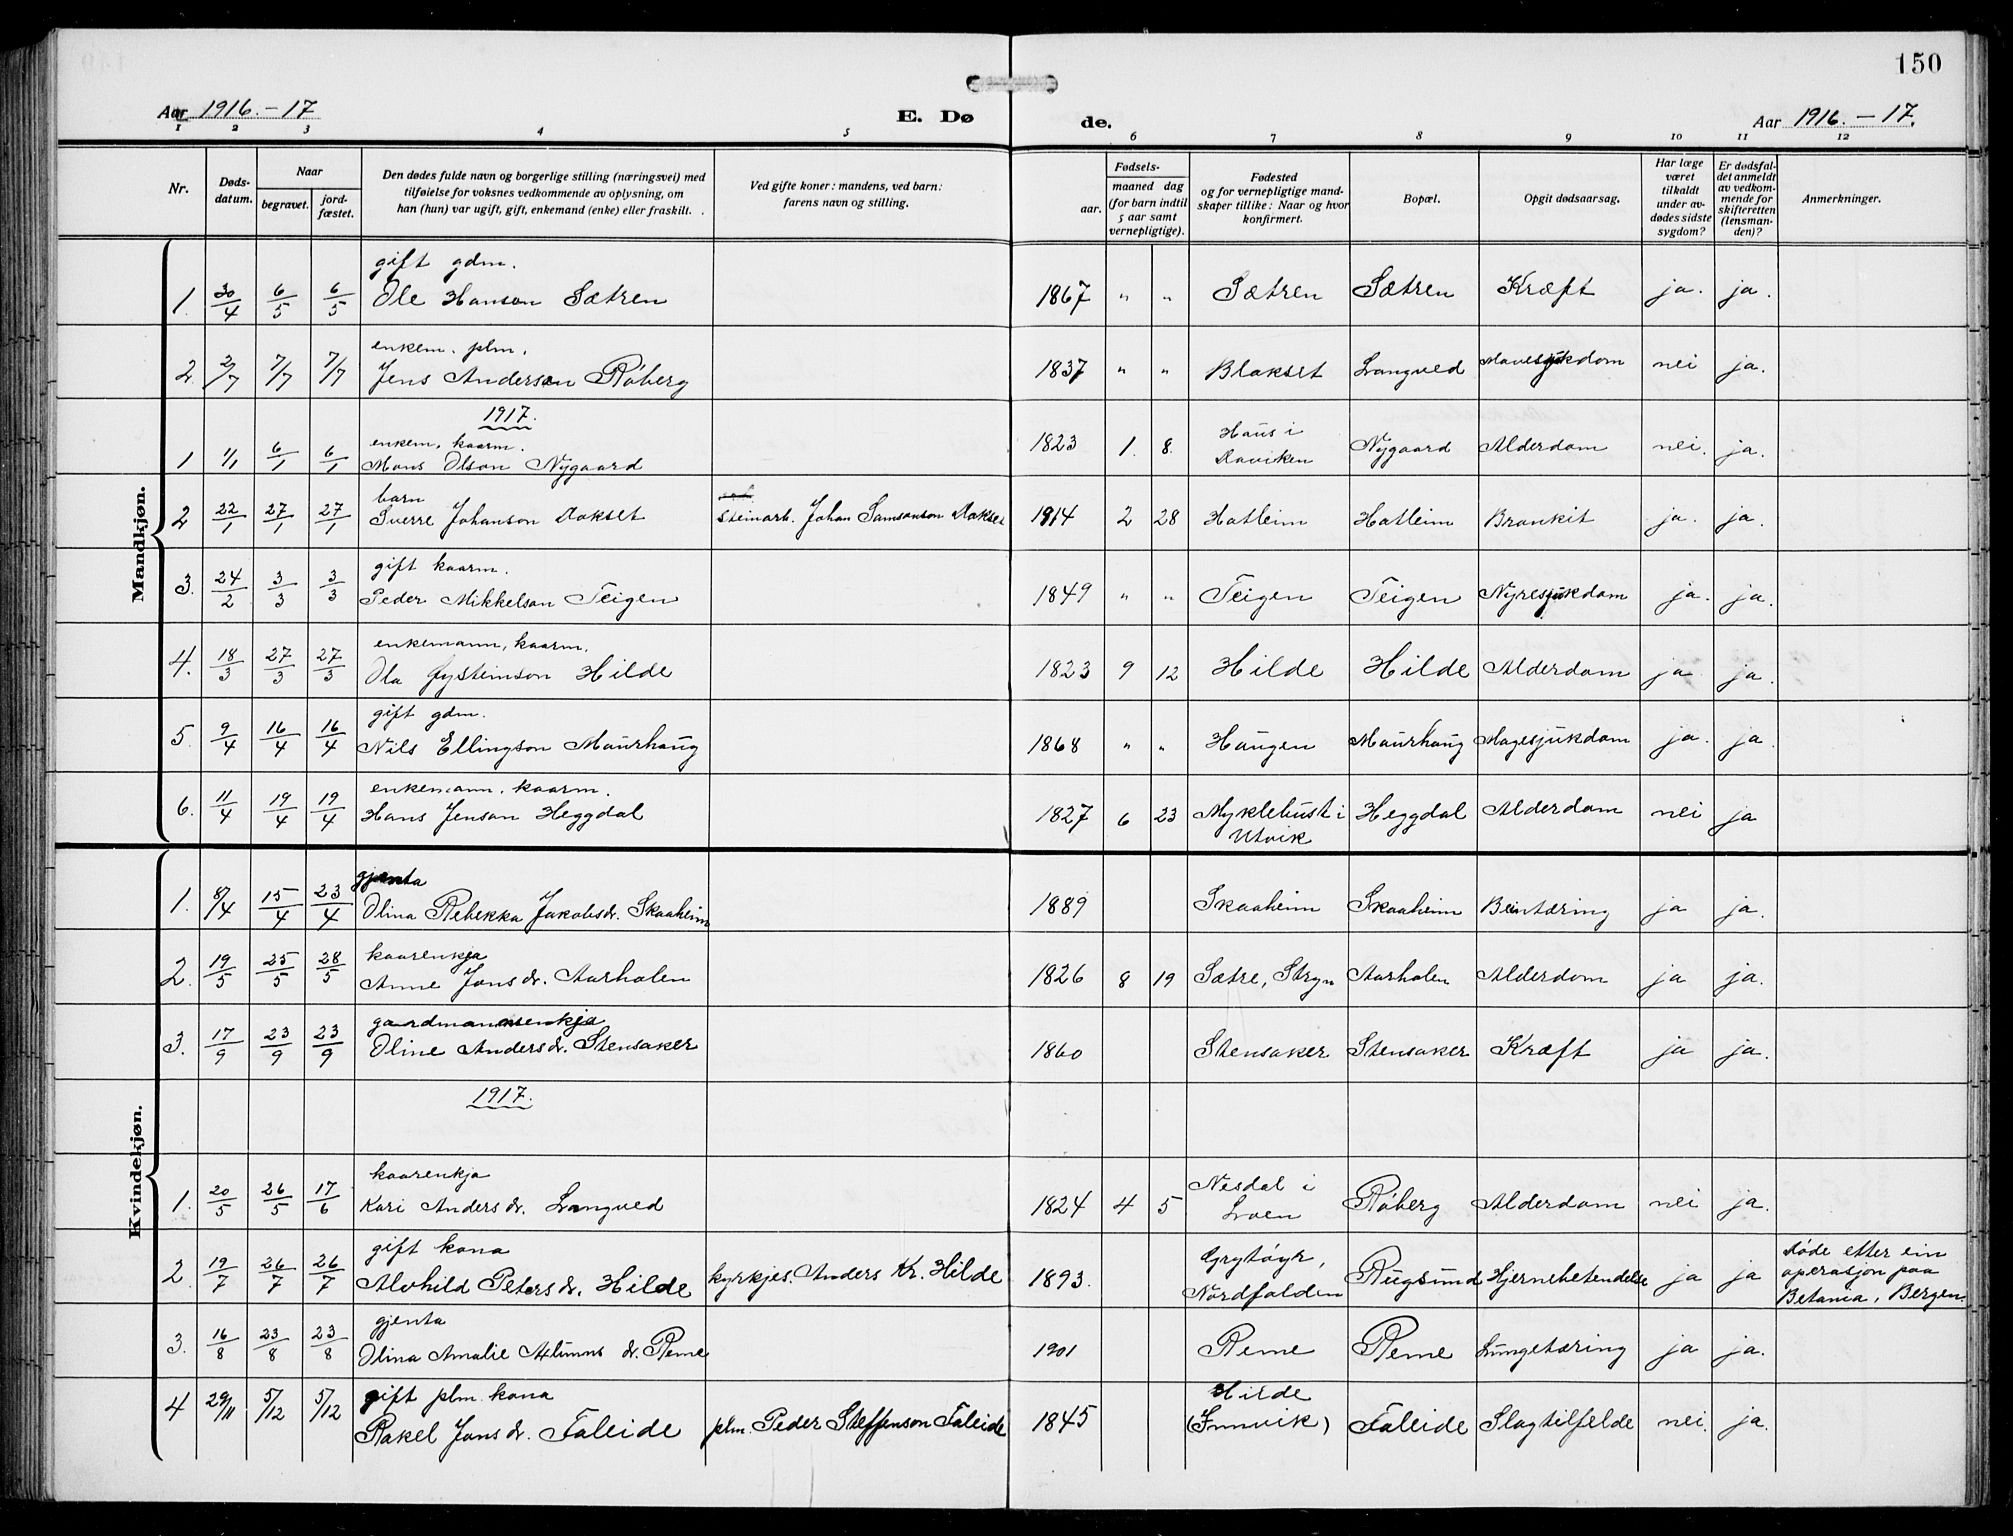 150
Aar 1916.-17
E. Dø
de.
Aar 1916.-17.
1 2 3 4 5 6 7 8 9 10 11 12
Nr.
Døds-
datum.
Naar
begravet.
jord-
fæstet.
Den dødes fulde navn og borgerlige stilling (næringsvei) med
tilføielse for voksnes vedkommende av oplysning, om
han (hun) var ugift, gift, enkemand (enke) eller fraskilt.
Ved gifte koner: mandens, ved barn:
farens navn og stilling.
Fødsels-
aar.
maaned dag
(for barn indtil
5 aar samt
vernepligtige).
Fødested
og for vernepligtige mand-
skaper tillike: Naar og hvor
konfirmert.
Bopæl.
Opgit dødsaarsag.
Har læge
været
tilkaldt
under av-
dødes sidste
sygdom?
Er dødsfal-
det anmeldt
av vedkom-
mende for
skifteretten
(lensman-
den)?
Anmerkninger.
Mandkjøn.
gift gdm.
1. 30/4 6/5 6/5 Ole Hanson Sætren 1867 " " Sætren Sætren Kræft ja. ja.
enkem. plm.
2. 2/7 7/7 7/7 Jens Anderson Røberg 1837 " " Blakset Langved Mavesjukdom nei ja.
1917.
enkem. kaarm.
1 1/1 6/1 6/1 Mons Olson Nygaard 1823 1. 8. Haus i Daviken Nygaard Alderdom nei. ja.
barn
2 22/1 27/1 27/1 Sverre Johanson Aakset steinarb. Johan Samsonson Aakset 1914 2 28 Hatleim Hatleim Bronkit ja. ja.
gift kaarm.
3. 24/2 3/3 3/3 Peder Mikkelson Teigen 1849 " " Teigen Teigen Nyresjukdom ja. ja.
enkemann, kaarm.
4. 18/3 27/3 27/3 Ola Øysteinson Hilde 1823 9 12 Hilde Hilde Alderdom ja ja.
gift gdm.
5. 9/4 16/4 16/4 Nils Ellingson Maurhaug 1868 " " Haugen Maurhaug Magesjukdom ja. ja.
enkemann, kaarm.
6. 11/4 19/4 19/4 Hans Jenson Heggdal 1827 6 23 Myklebust i Utvik Heggdal Alderdom nei ja
Kvindekjøn.
gjenta
1. 8/4 15/4 23/4 Olina Rebekka Jakobsdr. Skaaheim 1889 Skaaheim Skaaheim Beintæring ja ja.
kaarenkja
2. 19/5 25/5 28/5 Anne Jonsdr. Aarholen 1826 8 19 Sætre, Stryn Aarholen Alderdom ja ja.
gardmannsenkja
3. 17/9 23/9 23/9 Oline Andersdr. Stensaker 1860 Stensaker Stensaker Kræft ja ja.
1917.
kaarenkja
1. 20/5 26/5 17/6 Kari Andersdr. Langved 1824 4 5 Nesdal i Loen Røberg Alderdom nei ja.
gift kona
2. 19/7 26/7 26/7 Alvhild Petersdr. Hilde kyrkjes. Anders Kr. Hilde 1893. Grytøyr, Nordfolden Rugsund Hjernebetendelse ja ja Døde etter ein
operasjon paa
Betania, Bergen.
gjenta
3. 16/8 23/8 23/8 Olina Amalie dr. Reme 1901 Reme Reme Lungetæring ja ja.
gift plm. kona
4 29/11 5/12 5/12 Rakel Jonsdr. Faleide plm. Peder Steffenson Faleide 1845 Hilde (Innvik) Faleide Slagtilfelde nei. ja.